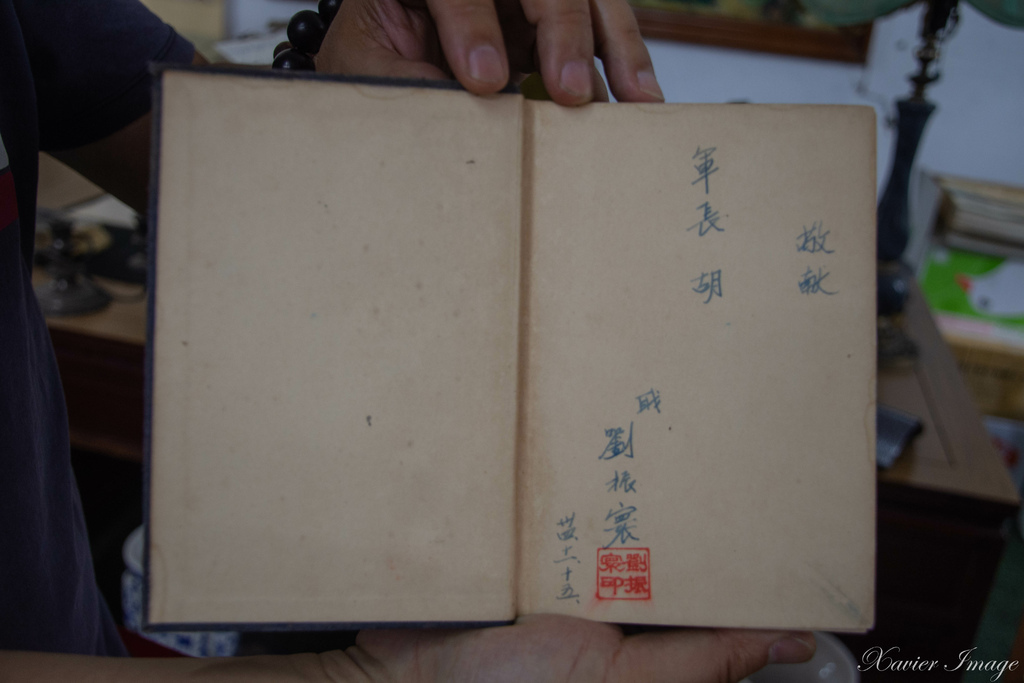 敬献
軍長 胡
職
劉振寰
十五、
劉振
寰印
Xavier Image